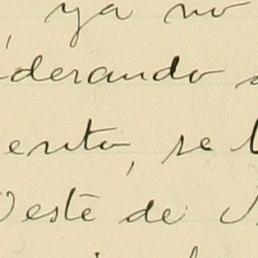 , ya no
derando
ento, se
este de